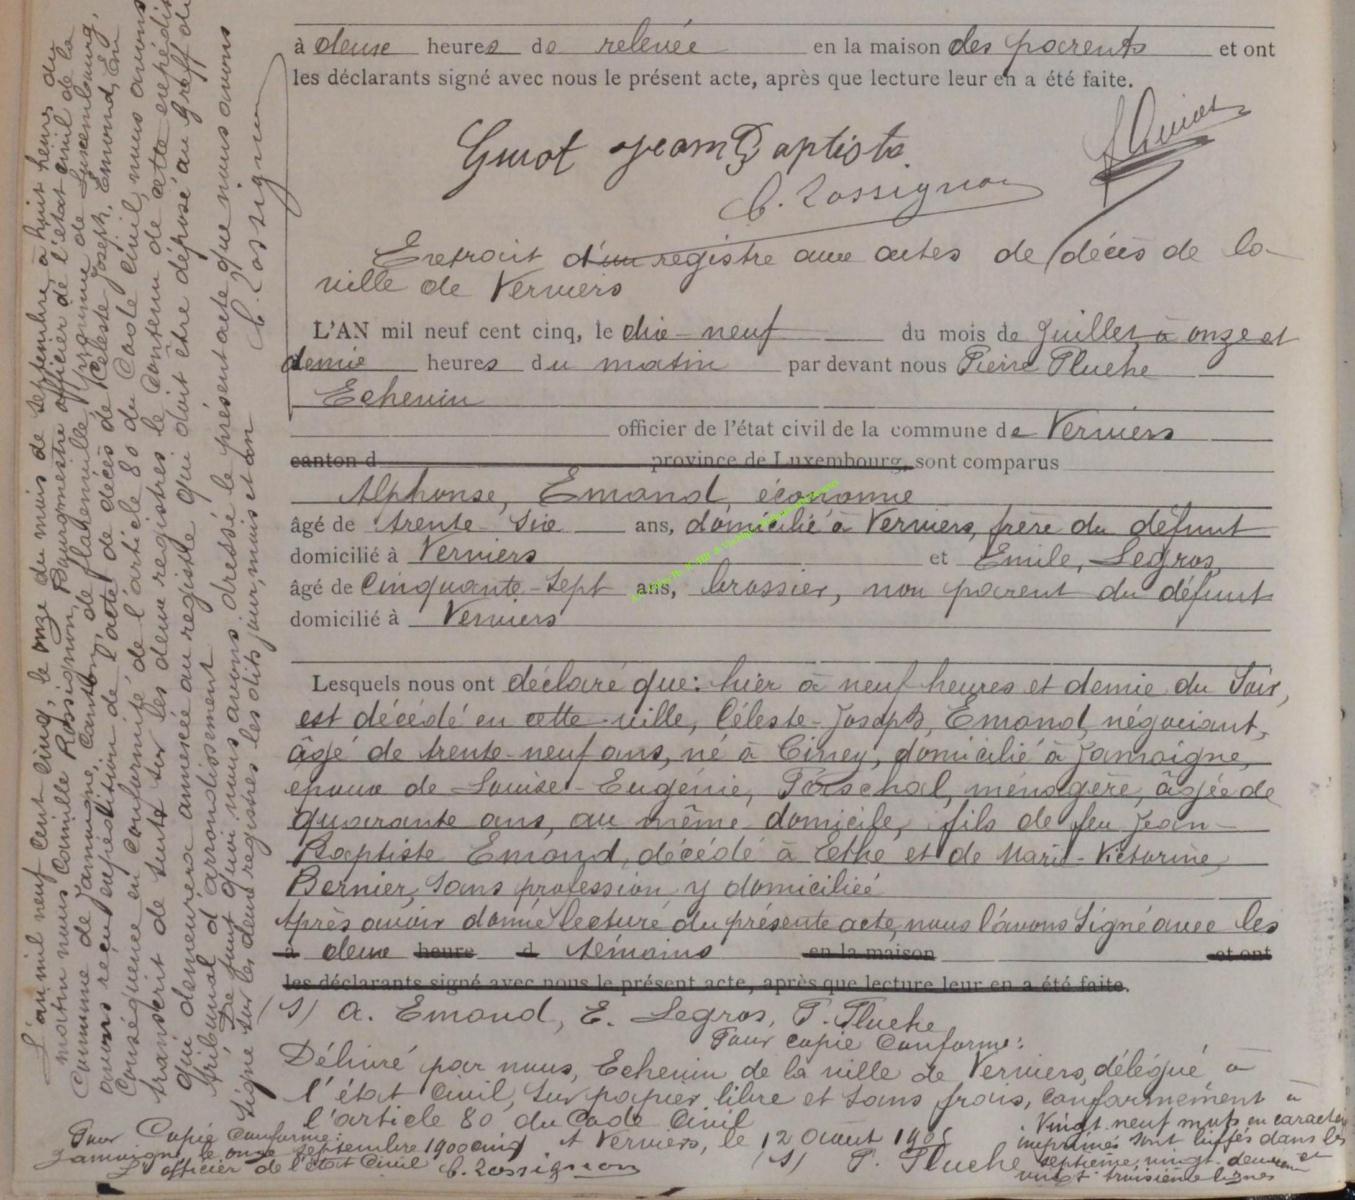 à deux heures de relevée en la maison des parents et ont
les déclarants signé avec nous le présent acte, après que lecture leur en a été faite.
Guiot Jean Baptiste
C. Rossignon
Extrait d'un registre aux actes de décès de la
ville de Verviers
L'AN mil neuf cent cinq, le dix-neuf du mois de Juillet à onze et
demie heures du matin par devant nous Pierre Pluche
Echevin
officier de l'état civil de la commune de Verviers
canton d province de Luxembourg, sont comparus
Alphonse, Emond, économe
âgé de trente-six ans, domicilié à Verviers, frère du défunt
domicilié à Verviers et Emile, Legros,
âgé de cinquante-sept ans, brossier, non parent du défunt
domicilié à Verviers
Lesquels nous ont déclaré que: hier à neuf heures et demie du Soir,
est décédé en cette ville, Céleste-Joseph, Emond, négociant,
âgé de trente-neuf ans, né à Ciney, domicilié à Jamoigne,
epoux de Louise-Eugénie, Perschal, ménagère, âgée de
quarante ans, au même domicile, fils de feu Jean-
Baptiste Emond, décédé à Ethe et de Marie-Victorine,
Bernier, sans profession y domiciliée
Après avoir donné lecture du présente acte, nous l'avons signé avec les
à deux heure d témoins en la maison et ont
les déclarants signé avec nous le présent acte, après que lecture leur en a été faite.
(S) A. Emond, E. Legros, P. Pluche
Pour copie conforme:
Délivré par nous, Echevin de la ville de Verviers, délégué à
l'état civil, sur papier libre et sans frais, conformément à
l'article 80 du Code Civil
A Verviers, le 12 Août 1905
(S) P. Pluche
Vingt neuf mots en caractères
imprimés sont biffés dans les
septième, vingt-deuxième et
vingt troisième lignes
L'an mil neuf cent cinq, le onze du mois de Septembre à huit heures du
matin nous Camille Rossignon, Bourgmestre officier de l'état civil de la
Commune de Jamoigne, Canton de Florenville, province de Luxembourg,
avons reçu expédition de l'acte de décès de Céleste Joseph, Emond, En
conséquence en conformité de l'article 80 du Code civil, nous avons
transcrit de suite sur les deux registres le contenu de cette expédition
qui demeurera annexée au registre qui doit être déposé au greffe du
tribunal d'arrondissement.
De tout quoi nous avons dressé le présent acte que nous avons
signé sur les deux registres les dits jour, mois et an
C. Rossignon
Pour Copie conforme:
Jamoigne, le onze Septembre 1900 cinq
L'officier de l'état civil C. Rossignon